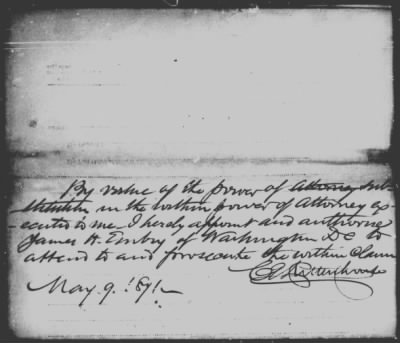 By virtue of the power of attorney sub-
-stitution in the within power of attorney ex-
-ecuted to me I hereby appoint and authorize
James H. Embry of Washington D C to
attend to and prosecute the within claim
May 9. 1871